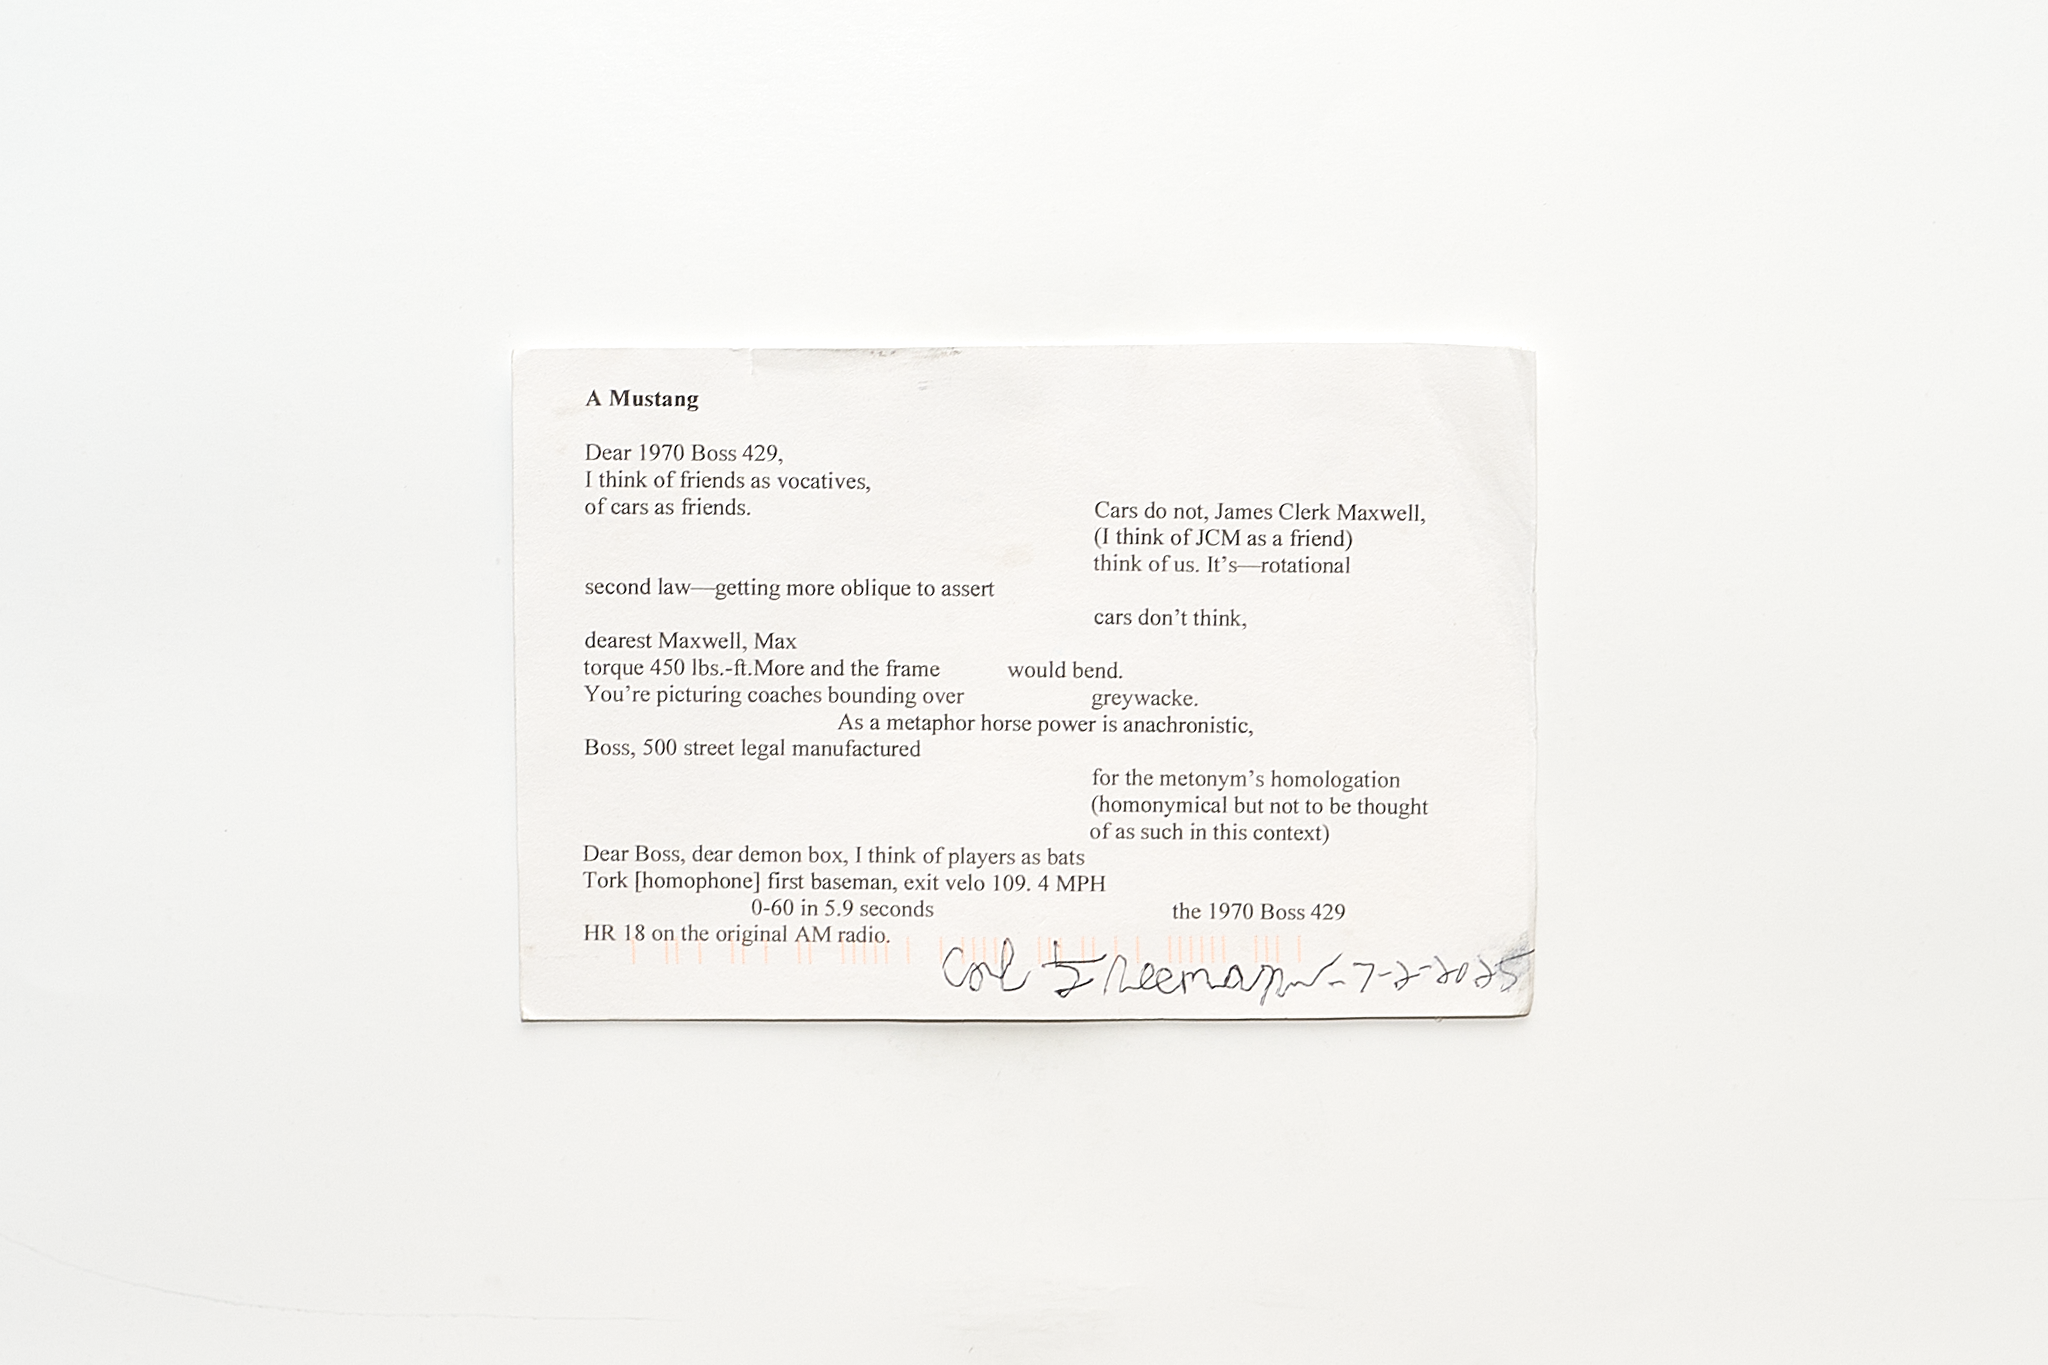 A Mustang
Dear 1970 Boss 429,
I think of friends as vocatives,
of cars as friends.
Cars do not, James Clerk Maxwell,
(I think of JCM as a friend)
think of us. It’s—rotational
second law—getting more oblique to assert
cars don’t think,
dearest Maxwell, Max
torque 450 lbs.-ft.More and the frame would bend.
You’re picturing coaches bounding over greywacke.
As a metaphor horse power is anachronistic,
Boss, 500 street legal manufactured
for the metonym’s homologation
(homonymical but not to be thought
of as such in this context)
Dear Boss, dear demon box, I think of players as bats
Tork [homophone] first baseman, exit velo 109. 4 MPH
0-60 in 5.9 seconds the 1970 Boss 429
HR 18 on the original AM radio.
7-2-2025